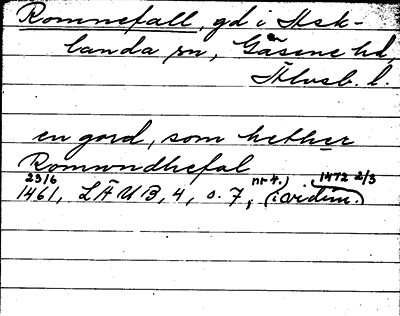 Romnefall, gd i Ask-
landa sn, Gäsene hd,
Älvsb. l.
en gord, som hether
Romwndhefal
23/6 nr 4, 1472 2/3
1461, LÄUB, 4, s. 7, (i vidim.)